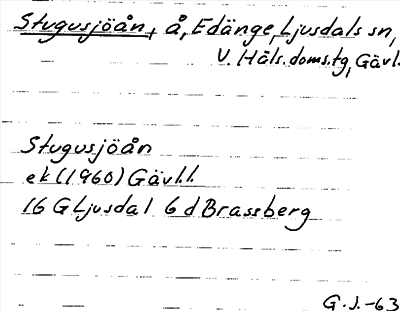 Stugusjöån, å, Edänge, Ljusdals sn,
V. Häls. doms.tg, Gävl.
Stugusjöån
ek (1960) Gävl.l.
16 G Ljusdal 6 d Brassberg
G.J.-63